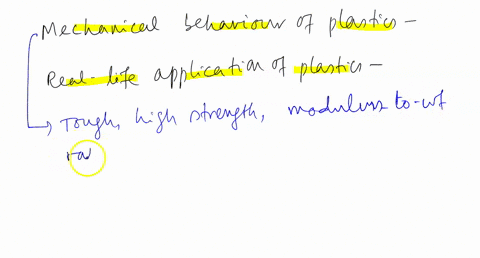 Mechanical behaviour of plastics -
Real-life application of plastics -
Tough, high strength, modulus to-wt
ra